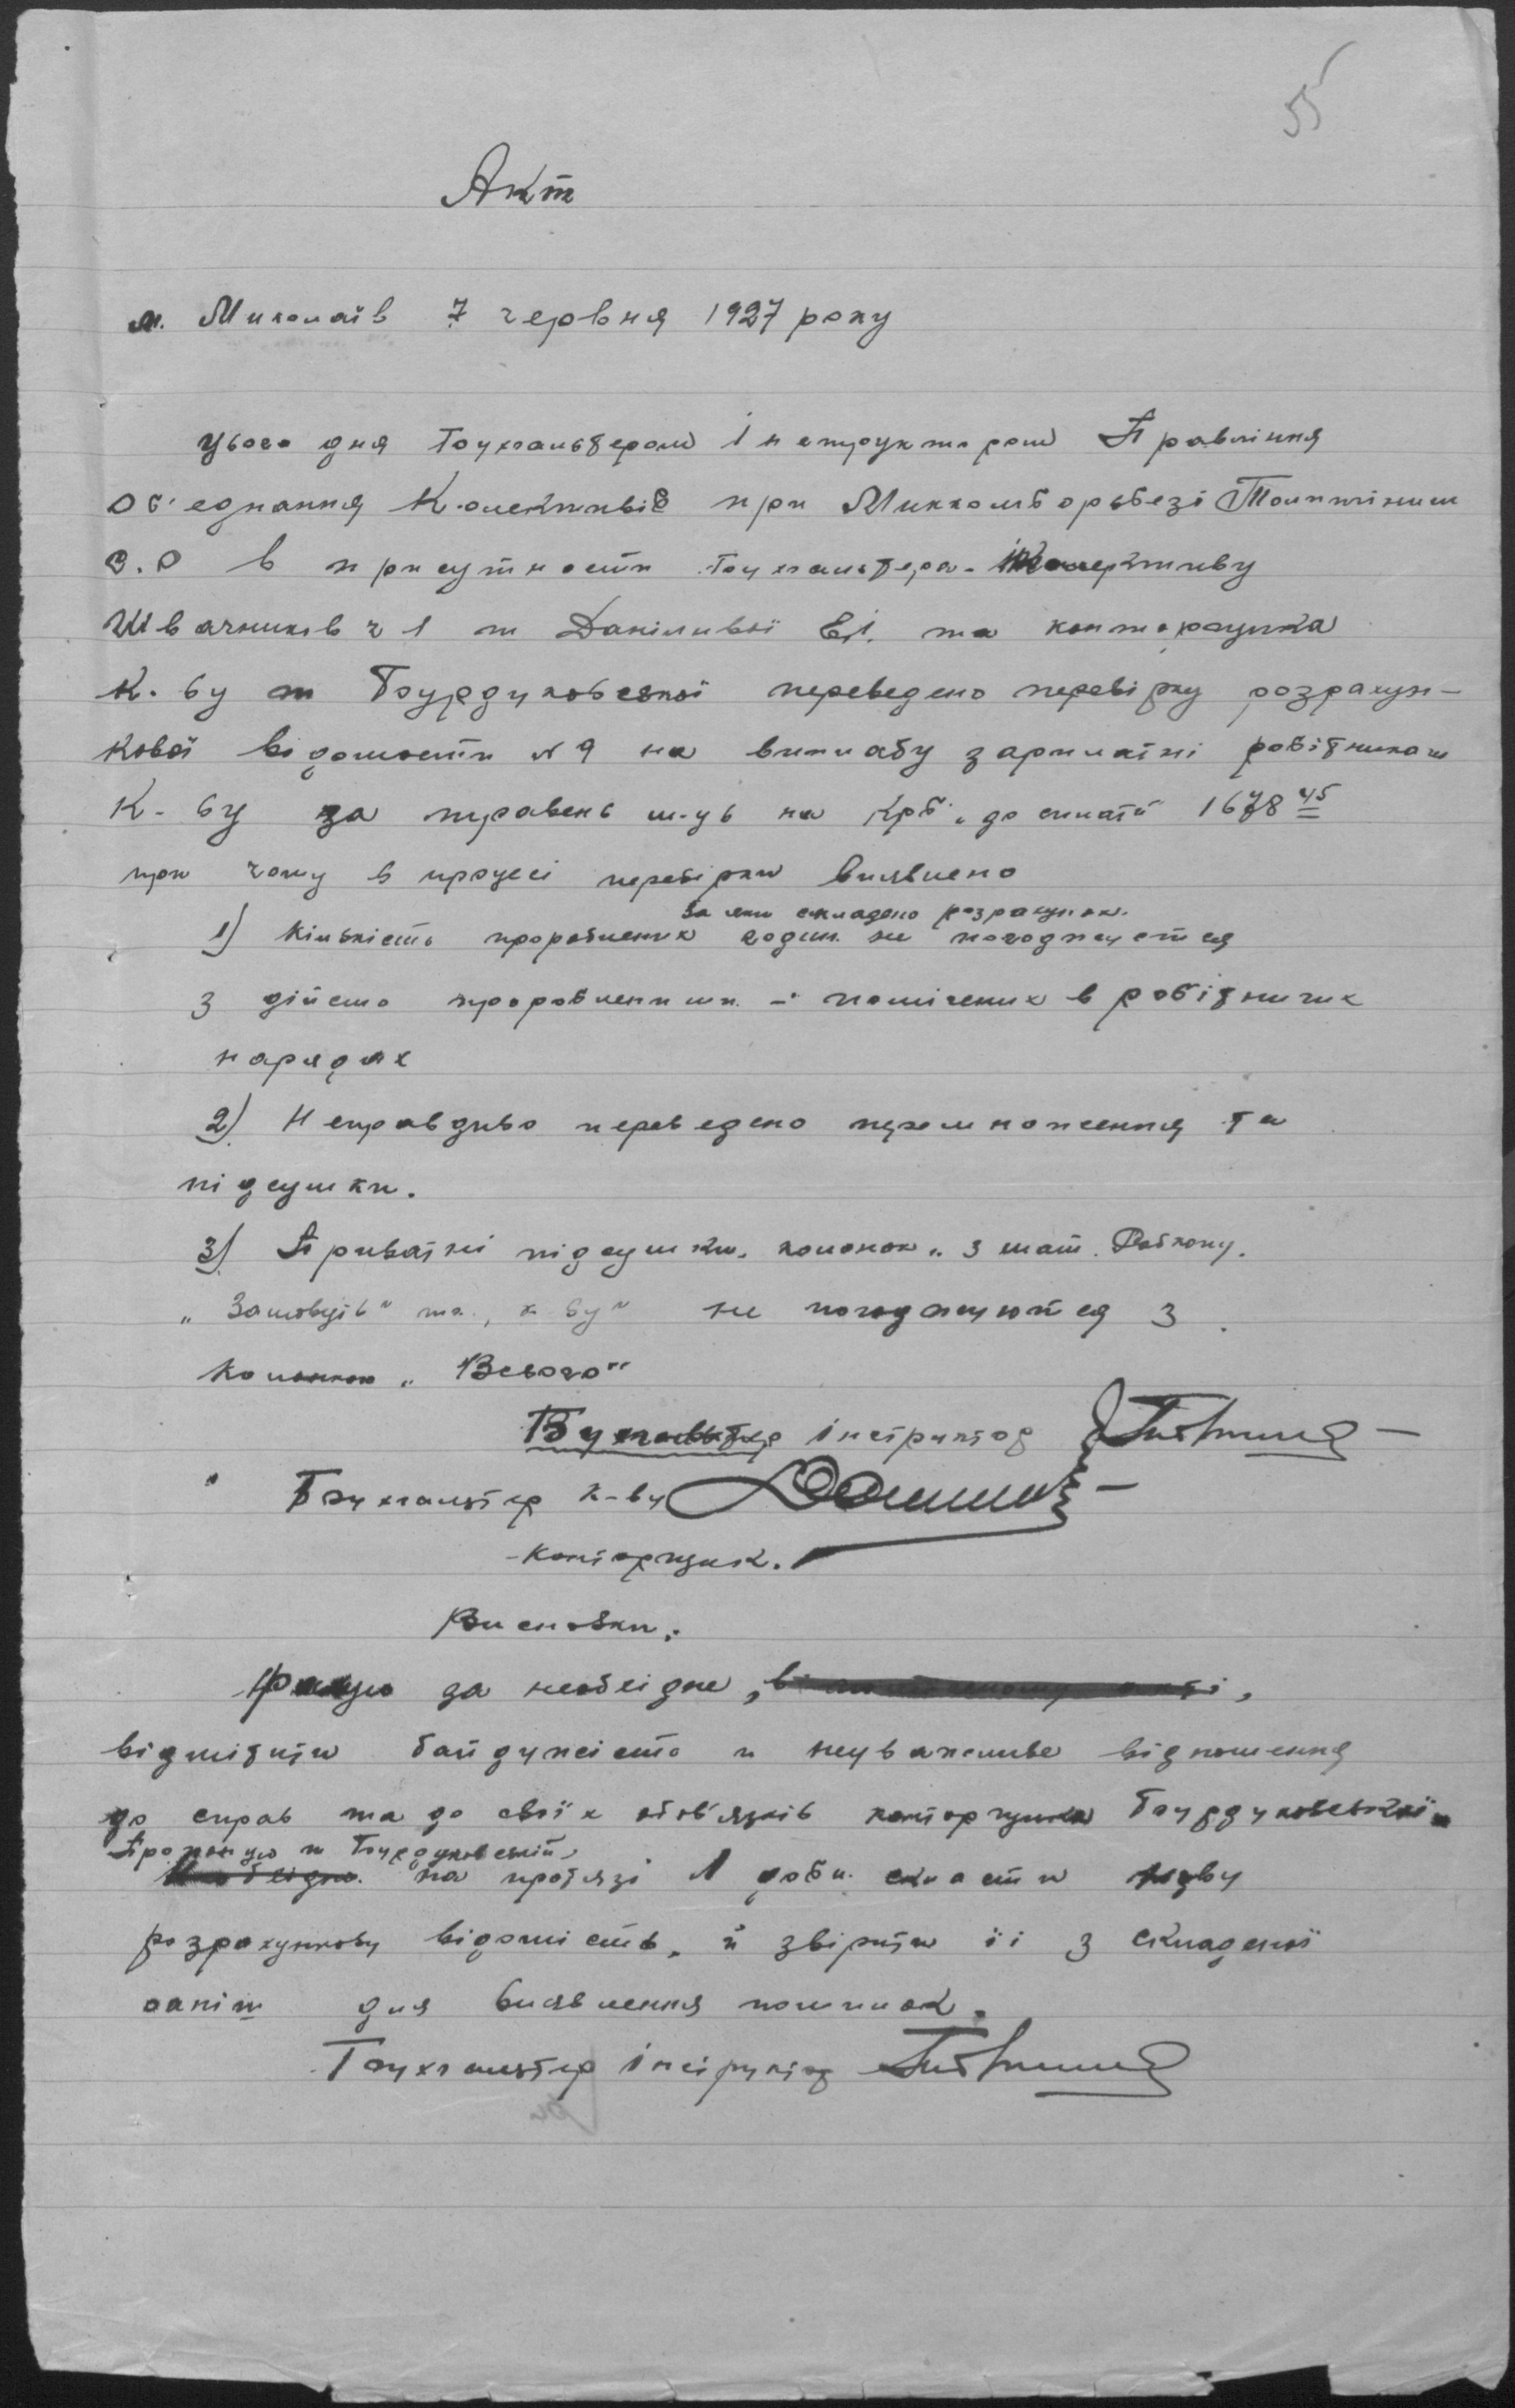 55
Акт
м. Миколаїв 7 червня 1927 року
Цього дня Бухгальтером Інструктором Правління
Об'єднання Колективів при Миккомборьбезі
О.О в присутности Бухгальтера Колективу
Швачників ч 1 т Даніливої Є.І. та конторщика
К-ву т Бурдуковської переведено перевірку розрахун-
кової відомости № 9 на виплату зарплатні робітникам
К-ву за травень м-ць на крб. до сплати 1678 45
при чому в процесі перевірки виявлено
за яки складено розрахунок.
1) Кількість проробнених годин не погоджується
з дійсно проробненими - помічених в робітничих
нарядах
2) Неправдиво переведено перемноження та
підсумки.
3) Приватні підсумки колонок „ з мат. Робкому.
„Замовців" та „к-ву" не погоджуются з
колонкою „Всього"
Бухгальтер інструктор
Бухгальтер к-ву
Конторщик.
Висновки:
Рахую за необхідне,
відмітити байдужість и неуважливе відношення
до справ та до своїх обов'язків конторщика Бурдуковської
Пропоную т Бурдуковській
на протязі 1 доби скласти нову
розрахункову відомість, й звірити її з складеної
раніш для виявлення помилок.
Бухгальтер інструктор